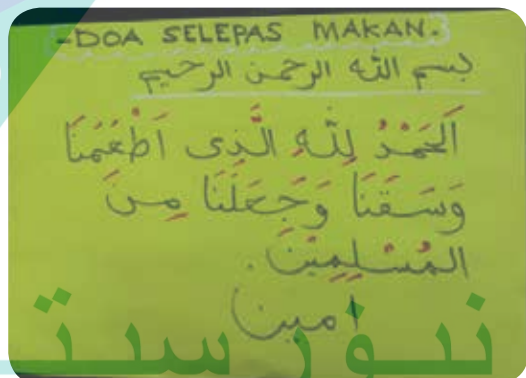 -DOA SELEPAS MAKAN.
بسم الله الرحمن الرحيم
اَلْحَمْدُ لِلّٰهِ الَّذِى اَطْعَمَنَا
وَسَقَنَا وَجَعَلَنَا مِنَ
الْمُسْلِمِيْنَ.
امين